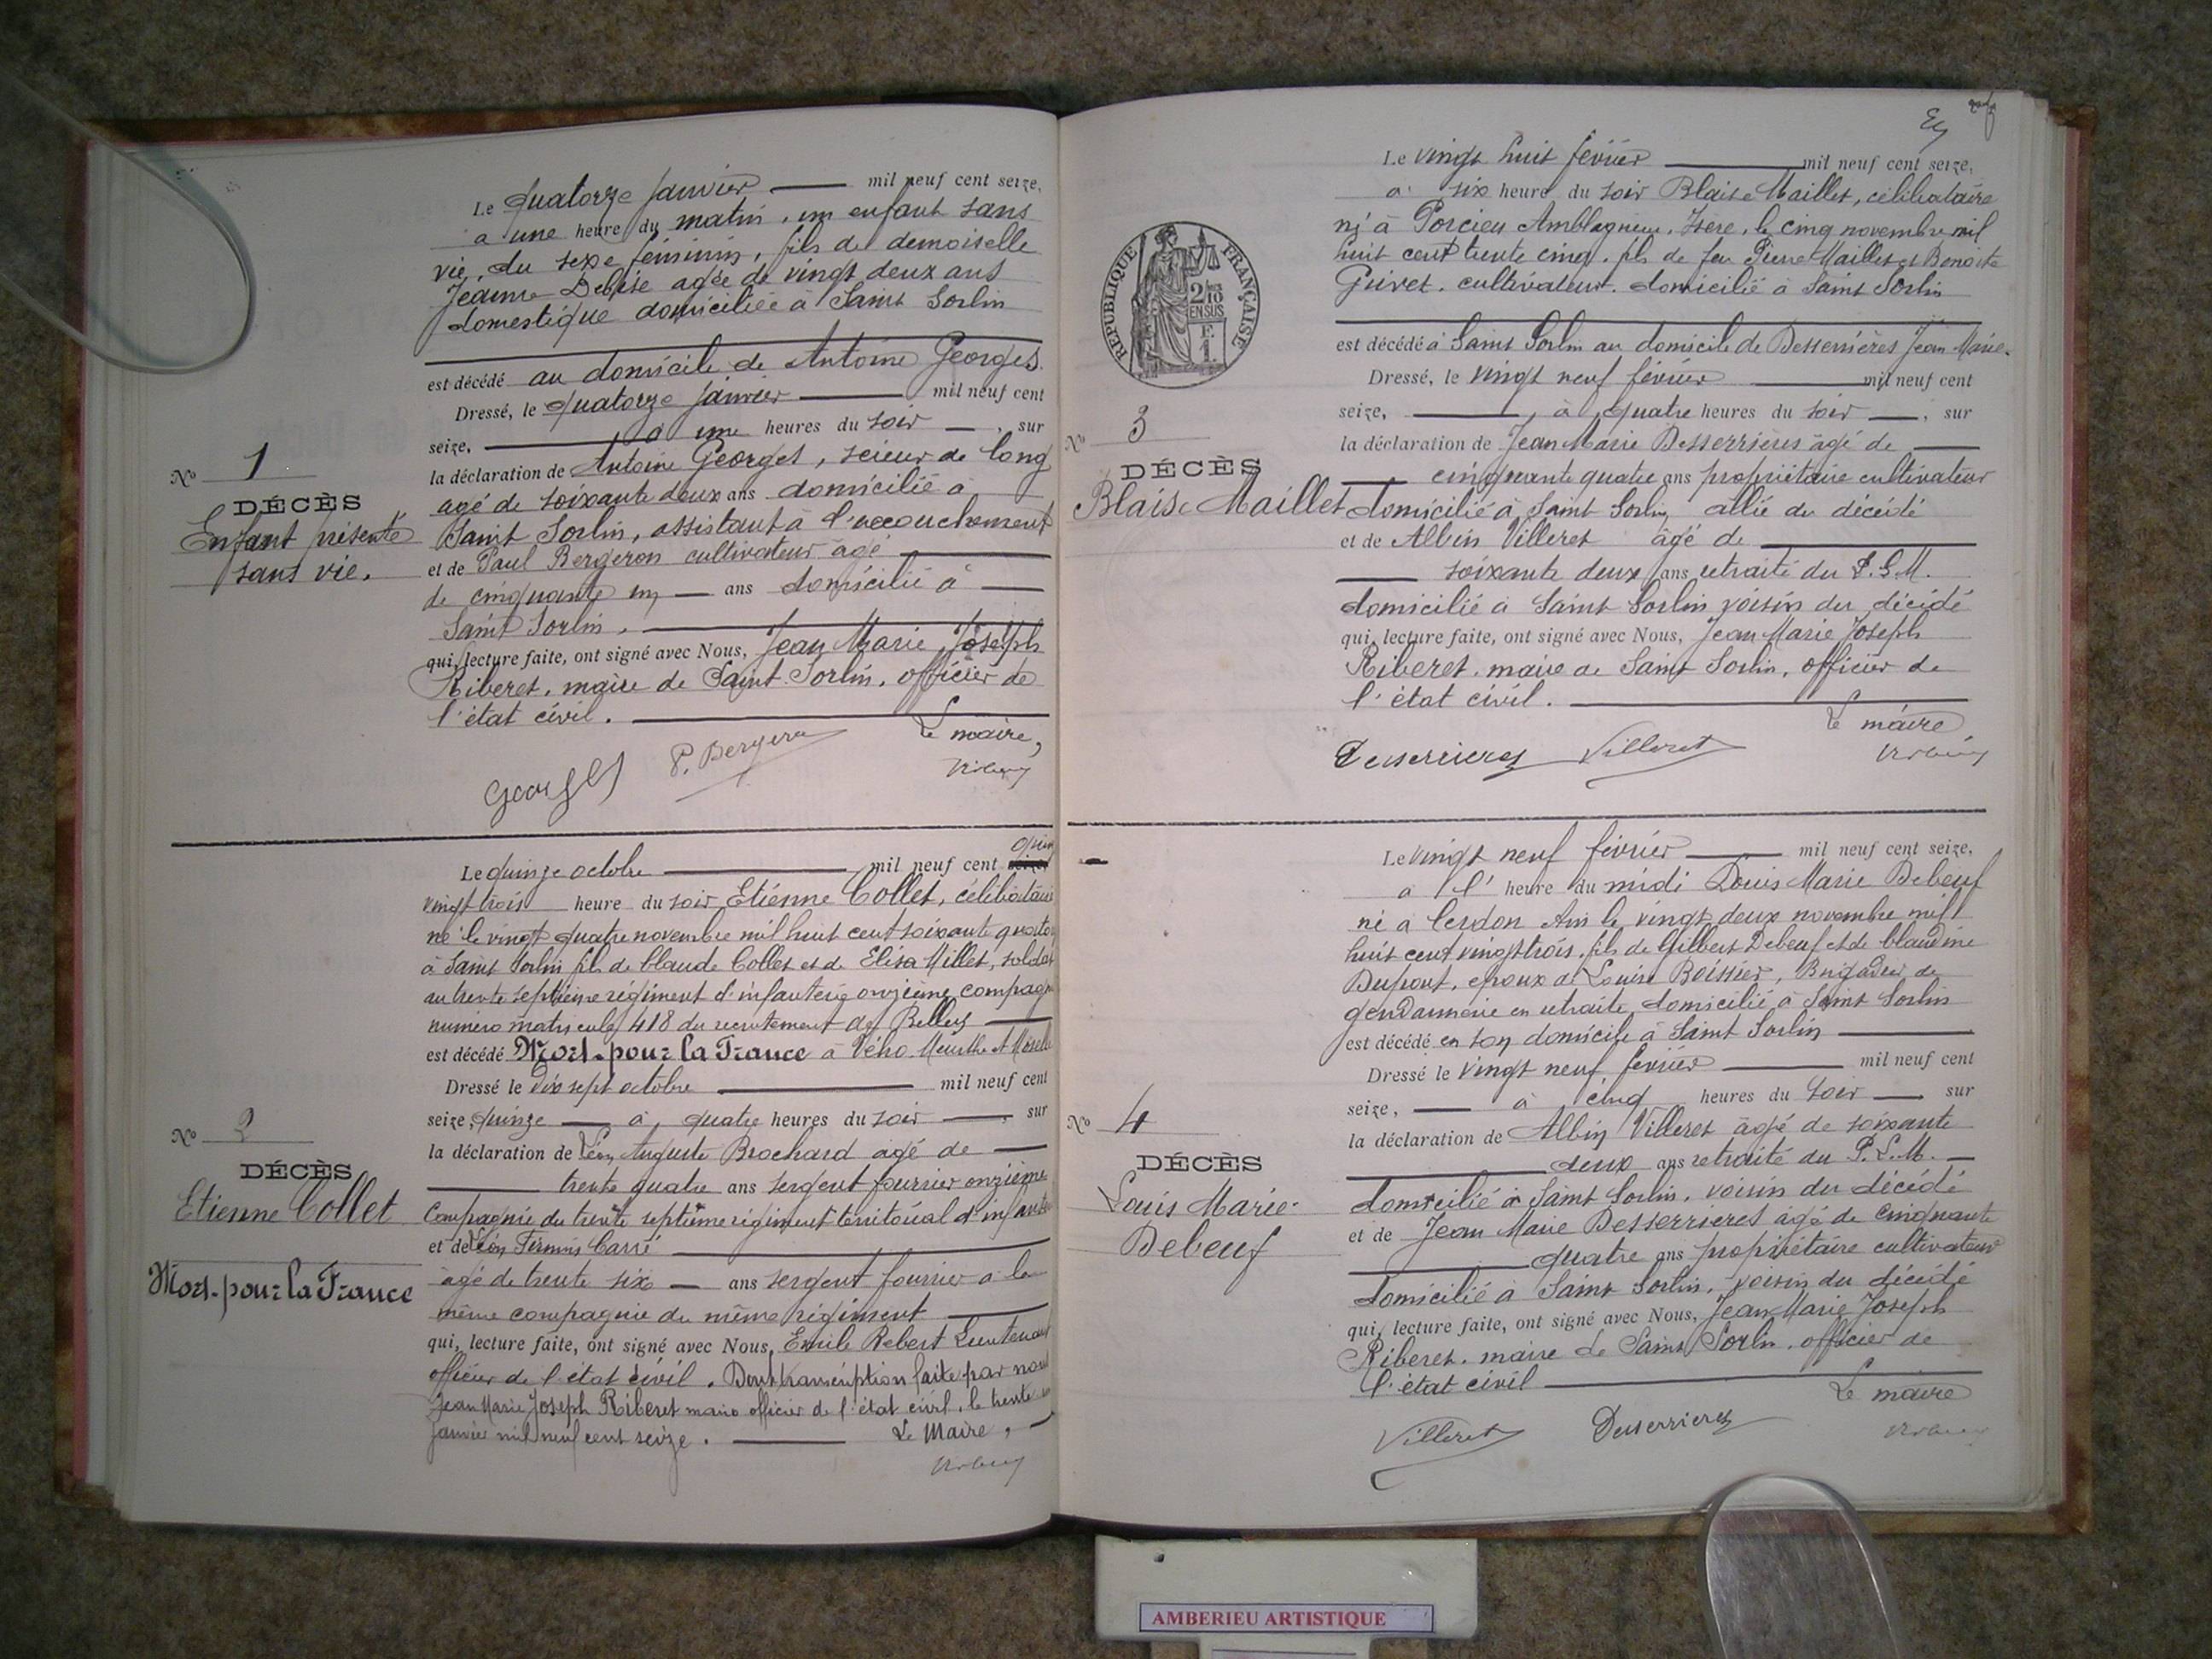 Le quatorze janvier mil neuf cent seize,
a une heure du matin, un enfant sans
vie, du sexe féminin, fils de demoiselle
Jeanne agée de vingt deux ans
domestique domiciliée à Saint Sorlin
est décédé au domicile de Antoine Georges.
Dressé, le quatorze janvier mil neuf cent
seize, à une heures du soir, sur
la déclaration de Antoine Georges, scieur de long
agé de soixante deux ans domicilié à
Saint Sorlin, assistant à l'accouchement
et de Paul Bergeron cultivateur âgé
de cinquante un ans domicilié à
Saint Sorlin.
qui, lecture faite, ont signé avec Nous, Jean Marie Joseph
Riberet, maire de Saint Sorlin, officier de
l'état civil.
Le maire,
Georges P. Bergeron
No 1
DÉCÈS
Enfant présenté
sans vie.
Le quinze octobre mil neuf cent
vingt trois heure du soir Etienne Collet, célibataire
né le vingt quatre novembre mil huit cent soixante quator
à Saint Sorlin fils de Claude Collet et de Elisa Millet, soldat
au trente septième régiment d'infanterie onzième compagn
numéro matricule 418 du recrutement de Belley
est décédé Mort pour la France à Vého Meurthe et Moselle
Dressé le dix sept octobre mil neuf cent
seize, quinze à, quatre heures du soir, sur
la déclaration de Léon Auguste Brochard agé de
trente quatre ans sergent fourrier onzième
Compagnie du trente septième régiment territorial d'infanterie
et de Léon Firmin Carré
âgé de trente six ans sergent fourrier à la
même compagnie du même régiment
qui, lecture faite, ont signé avec Nous, Emile Rebert Lieutenant
officier de l'état civil. Dont transcription faite par nous
Jean Marie Joseph Riberet maire officier de l'état civil, le trente
janvier mil neuf cent seize. Le Maire,
No 2
DÉCÈS
Etienne Collet
Mort-pour la France
Le vingt huit février mil neuf cent seize,
a six heure du soir Blaise Maillet, célibataire
né à Porcieu Amblagnieu, Isère, le cinq novembre mil
huit cent trente cinq, fils de feu Pierre Maillet et Benoite
Guivet, cultivateur, domicilié à Saint Sorlin
est décédé à Saint Sorlin au domicile de Desserrières Jean Marie.
Dressé, le vingt neuf février mil neuf cent
seize, à quatre heures du soir, sur
la déclaration de Jean Marie Desserrières âgé de
cinquante quatre ans propriétaire cultivateur
domicilié à Saint Sorlin allié du décédé
et de Albin Villeret âgé de
soixante deux ans retraité du P.L.M.
domicilié à Saint Sorlin voisin du décédé
qui, lecture faite, ont signé avec Nous, Jean Marie Joseph
Riberet, maire de Saint Sorlin, officier de
l'état civil.
Le maire
Desserrieres Villeret
RÉPUBLIQUE FRANÇAISE
2/10
EN SUS
F.
1.
No 3
DÉCÈS
Blaise Maillet
Le vingt neuf février mil neuf cent seize,
a l' heure du midi Louis Marie Debeuf
né à Cerdon Ain le vingt deux novembre mil
huit cent vingt trois, fils de Gilbert Debeuf et de Claudine
Dupont, époux de Louise Boissier, Brigadier de
gendarmerie en retraite domicilié à Saint Sorlin
est décédé en son domicile à Saint Sorlin
Dressé le vingt neuf février mil neuf cent
seize, à cinq heures du soir sur
la déclaration de Albin Villeret âgé de soixante
deux ans retraité du P.L.M.
domicilié à Saint Sorlin, voisin du décédé
et de Jean Marie Desserrieres âgé de cinquante
quatre ans propriétaire cultivateur
domicilié à Saint Sorlin, voisin du décédé
qui, lecture faite, ont signé avec Nous, Jean Marie Joseph
Riberet, maire de Saint Sorlin, officier de
l'état civil
Le maire
Villeret Desserrieres
No 4
DÉCÈS
Louis Marie
Debeuf
AMBERIEU ARTISTIQUE